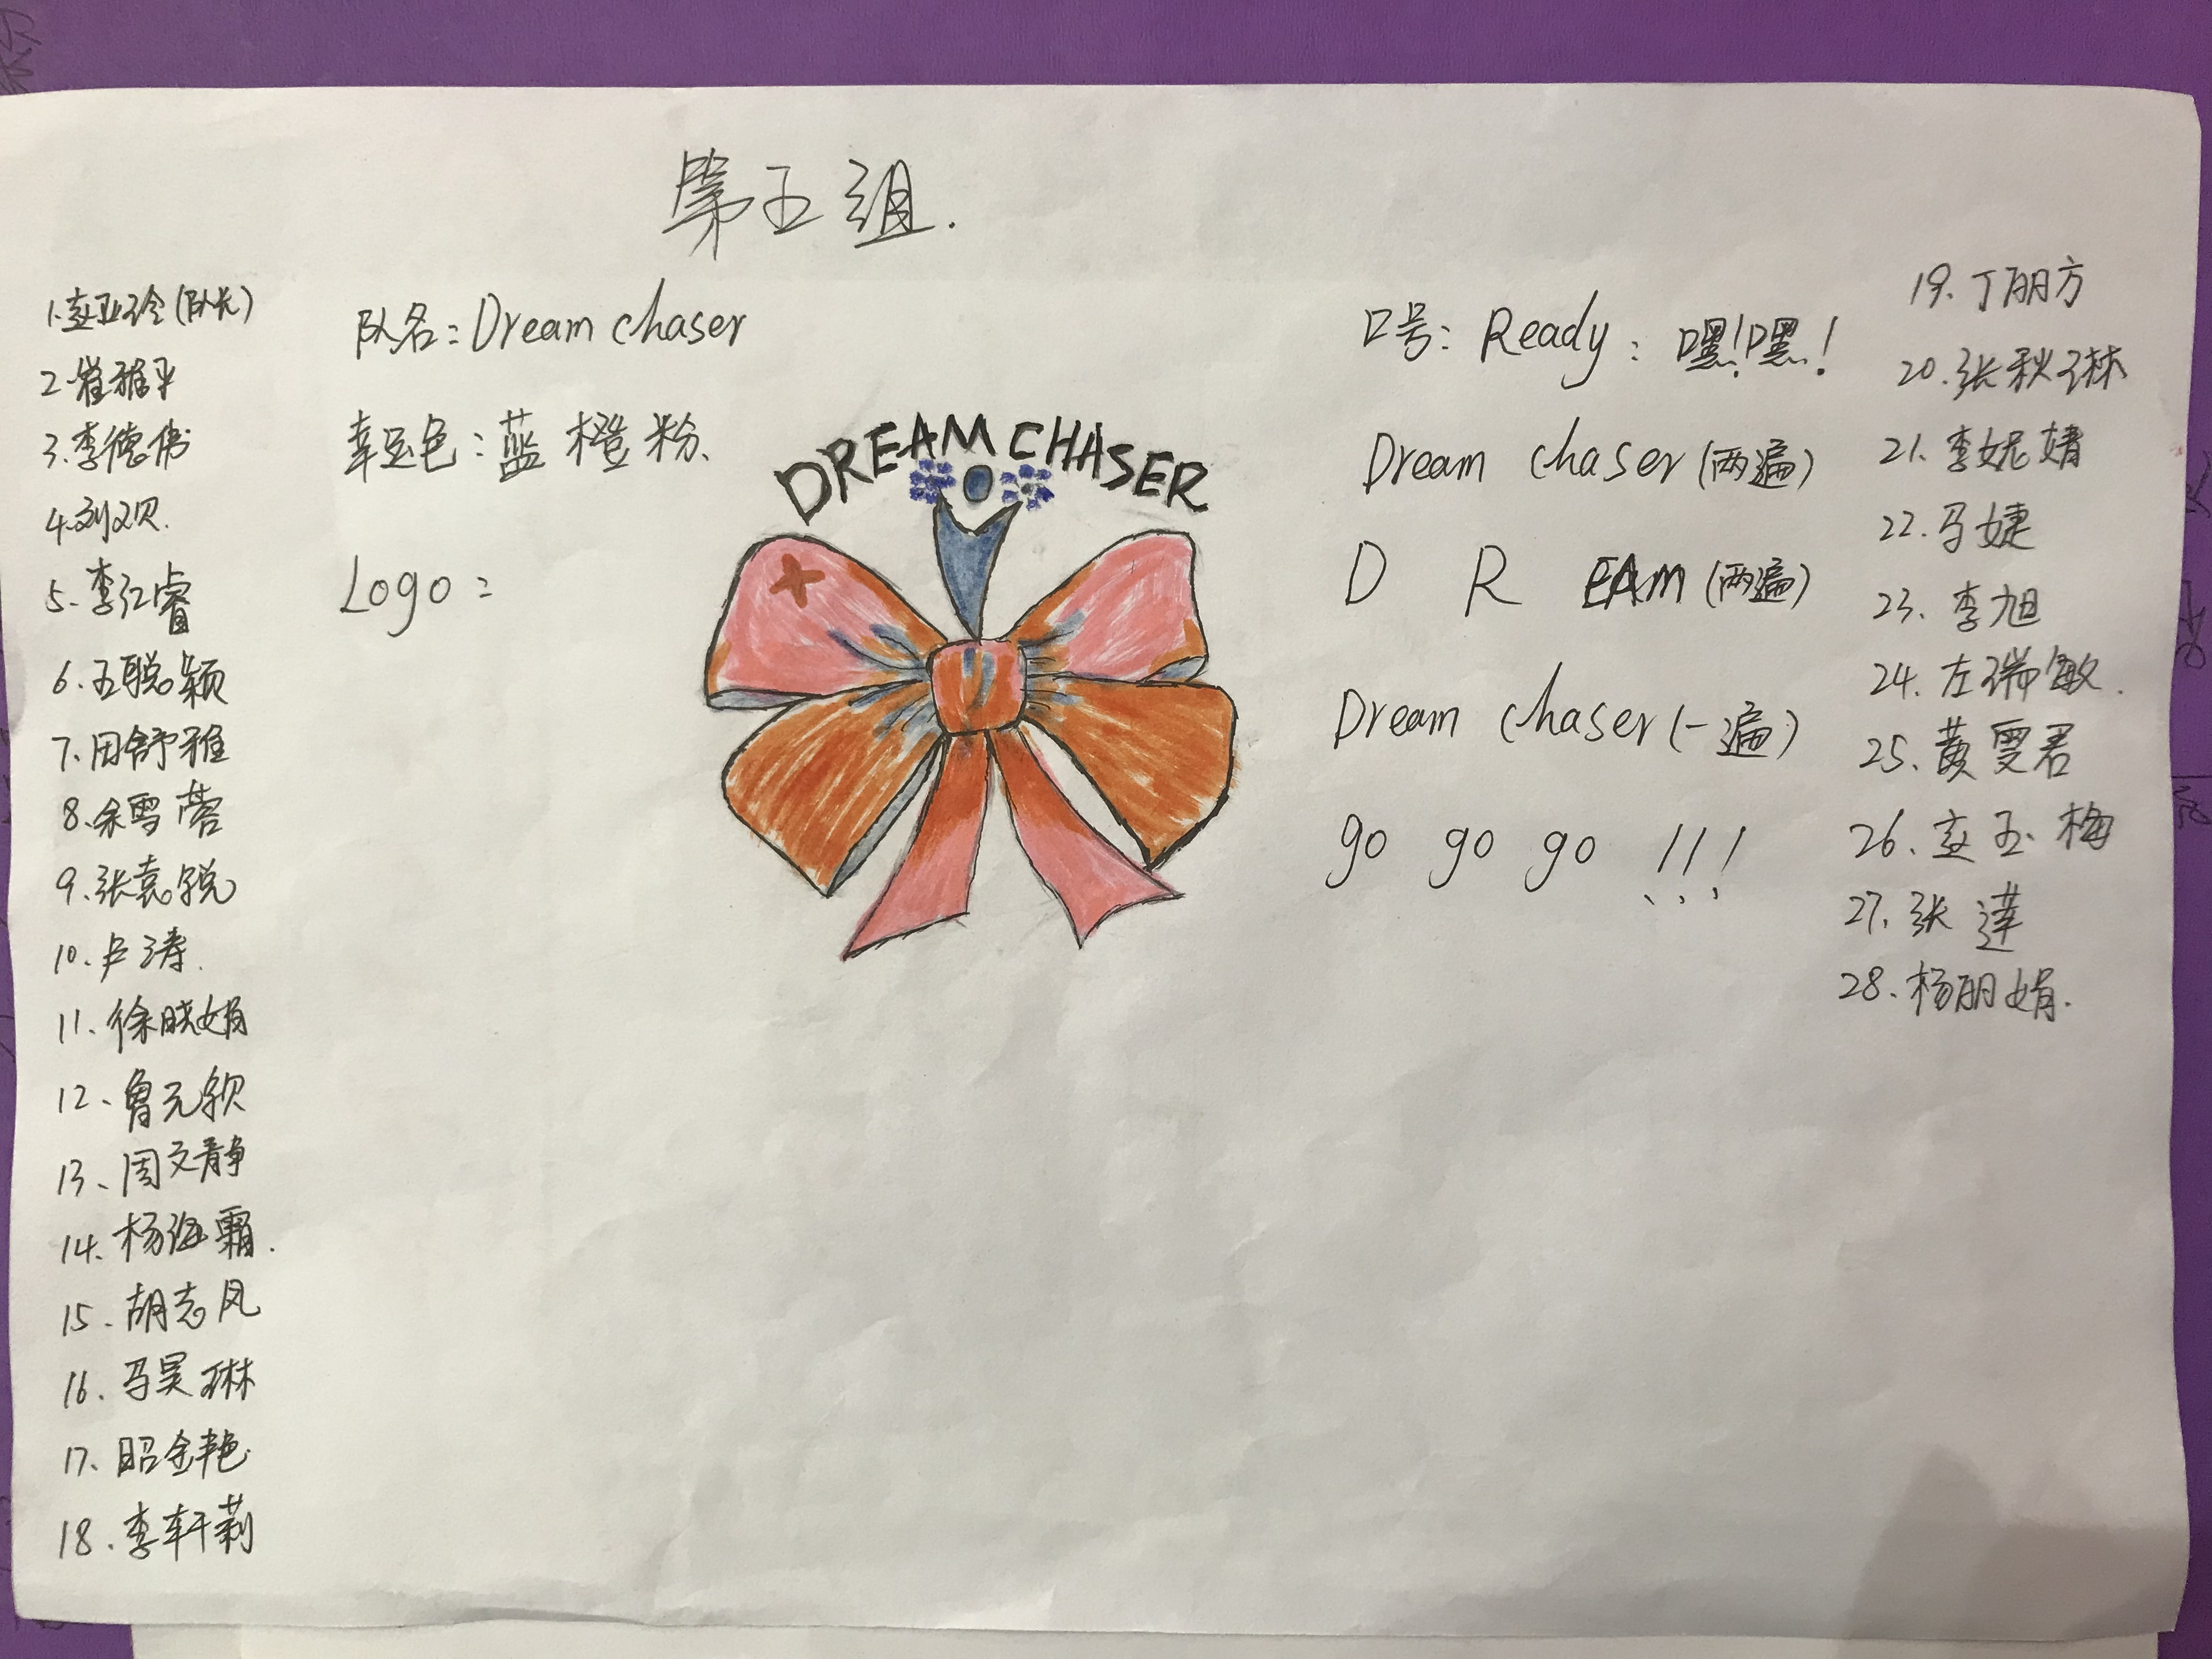 第五组.
1.赵亚玲(队长)
2.崔雅平
3.李德伟
4.刘双贝.
5.李红睿
6.王聪颖
7.田舒雅
8.余雪蓉
9.张嘉锐
10.卢涛.
11、徐晓娟
12、鲁元钦
13、周文静
14、杨海霜.
15.胡志凤
16.马昊琳
17、昭金艳
18.李轩莉
队名:Dream chaser
幸运色:蓝 橙 粉、
Logo:
DREAM CHASER
口号: Ready: 嘿!嘿!
Dream chaser (两遍)
D R EAM (两遍)
Dream chaser (一遍)
go go go !!!
19.丁丽方
20.张秋琳
21.李妮婧
22.马婕
23.李旭
24.左瑞敏.
25、黄雯君
26.赵玉梅
27.张莲
28.杨丽娟.